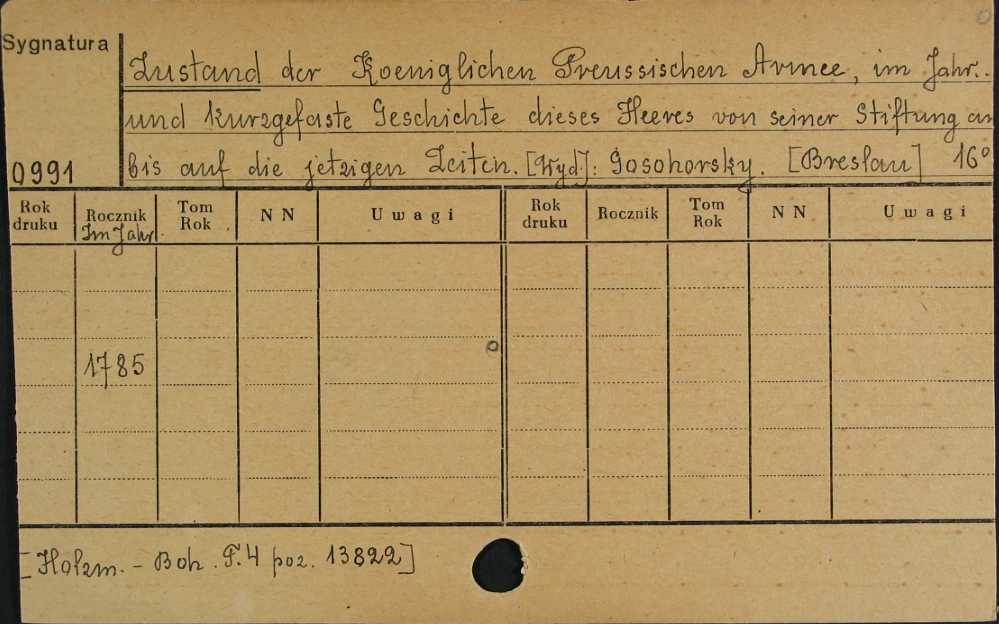 Sygnatura
Zustand der Koeniglichen Preussischen Armee, im Jahr..
und kurzgefaste Geschichte dieses Heeres von seiner Stiftung an
0991 bis auf die jetzigen Zeiten. [Wyd.]: Gosohorsky. [Breslau] 16°
Rok druku Rocznik Tom Rok NN Uwagi Rok druku Rocznik Tom Rok NN Uwagi
Im Jahr
1785
[Holzm. - Boh. T.4 poz. 13822]